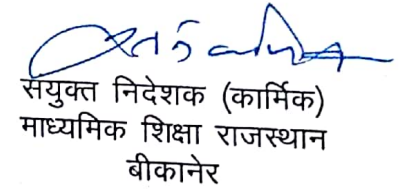 सयुक्त निदेशक (कार्मिक)
माध्यमिक शिक्षा राजस्थान
बीकानेर